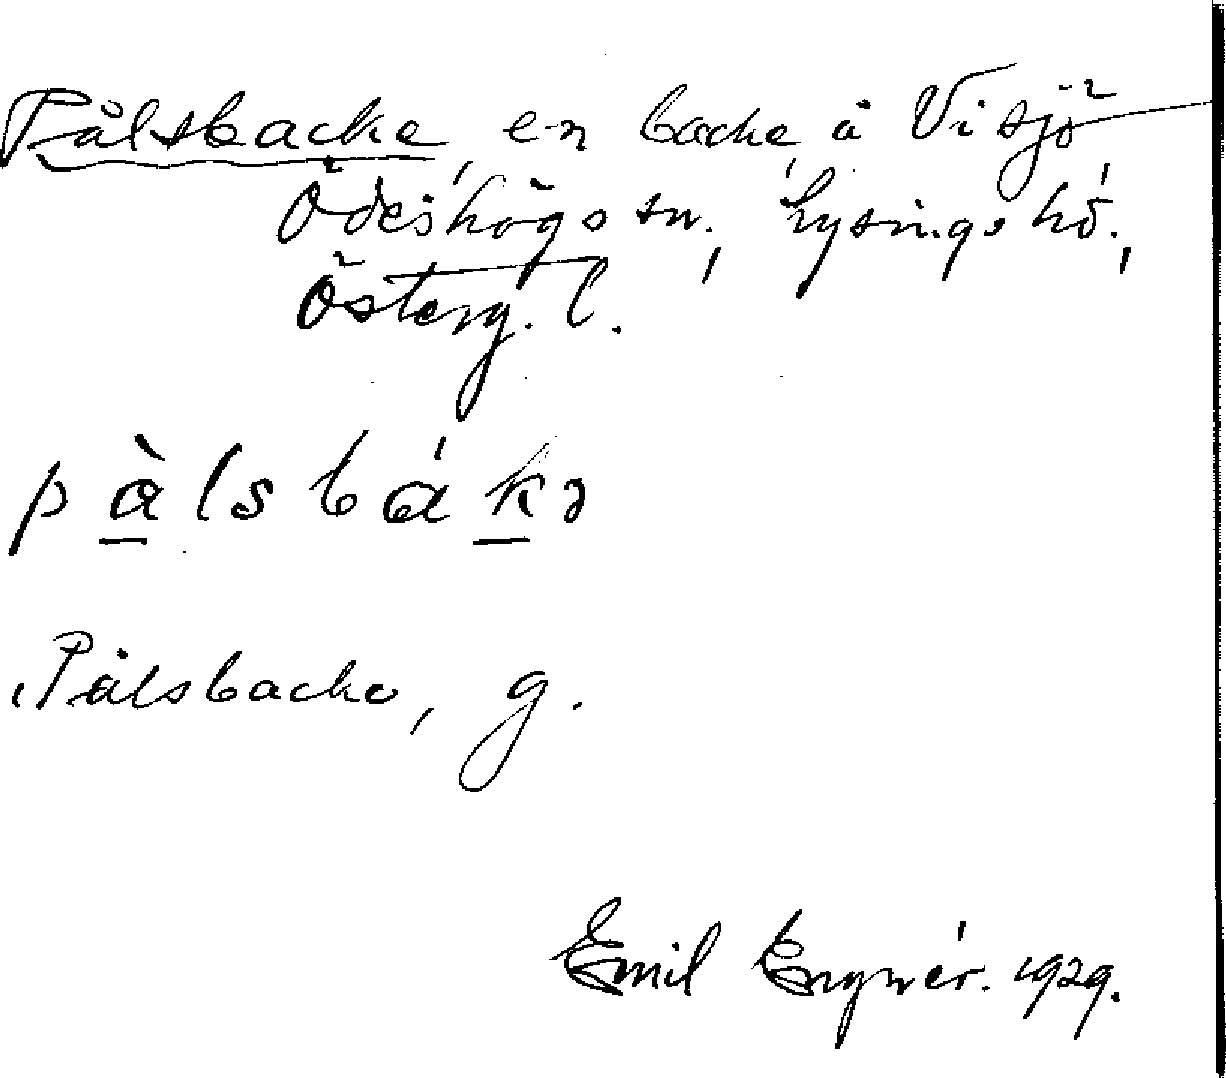 Pålsbacke, en backe, å Visjö
Ödeshögs sn., Lysings hd.,
Österg. l.
pàlsbákə
Pålsbacke, g.
Emil Engnér. 1929.